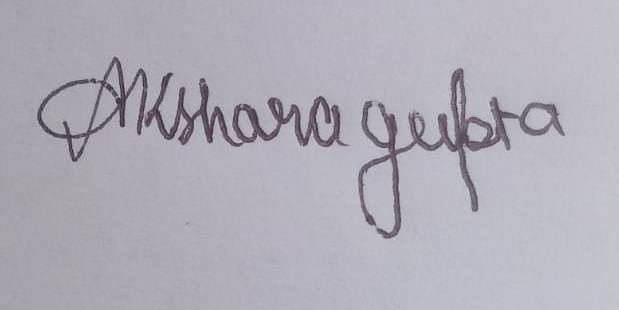 Akshara gupta